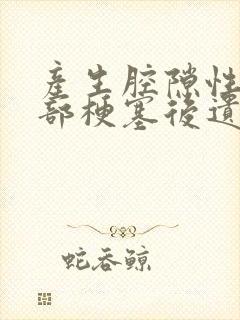 產生腔隙性
部梗塞後遺
蛇吞鯨